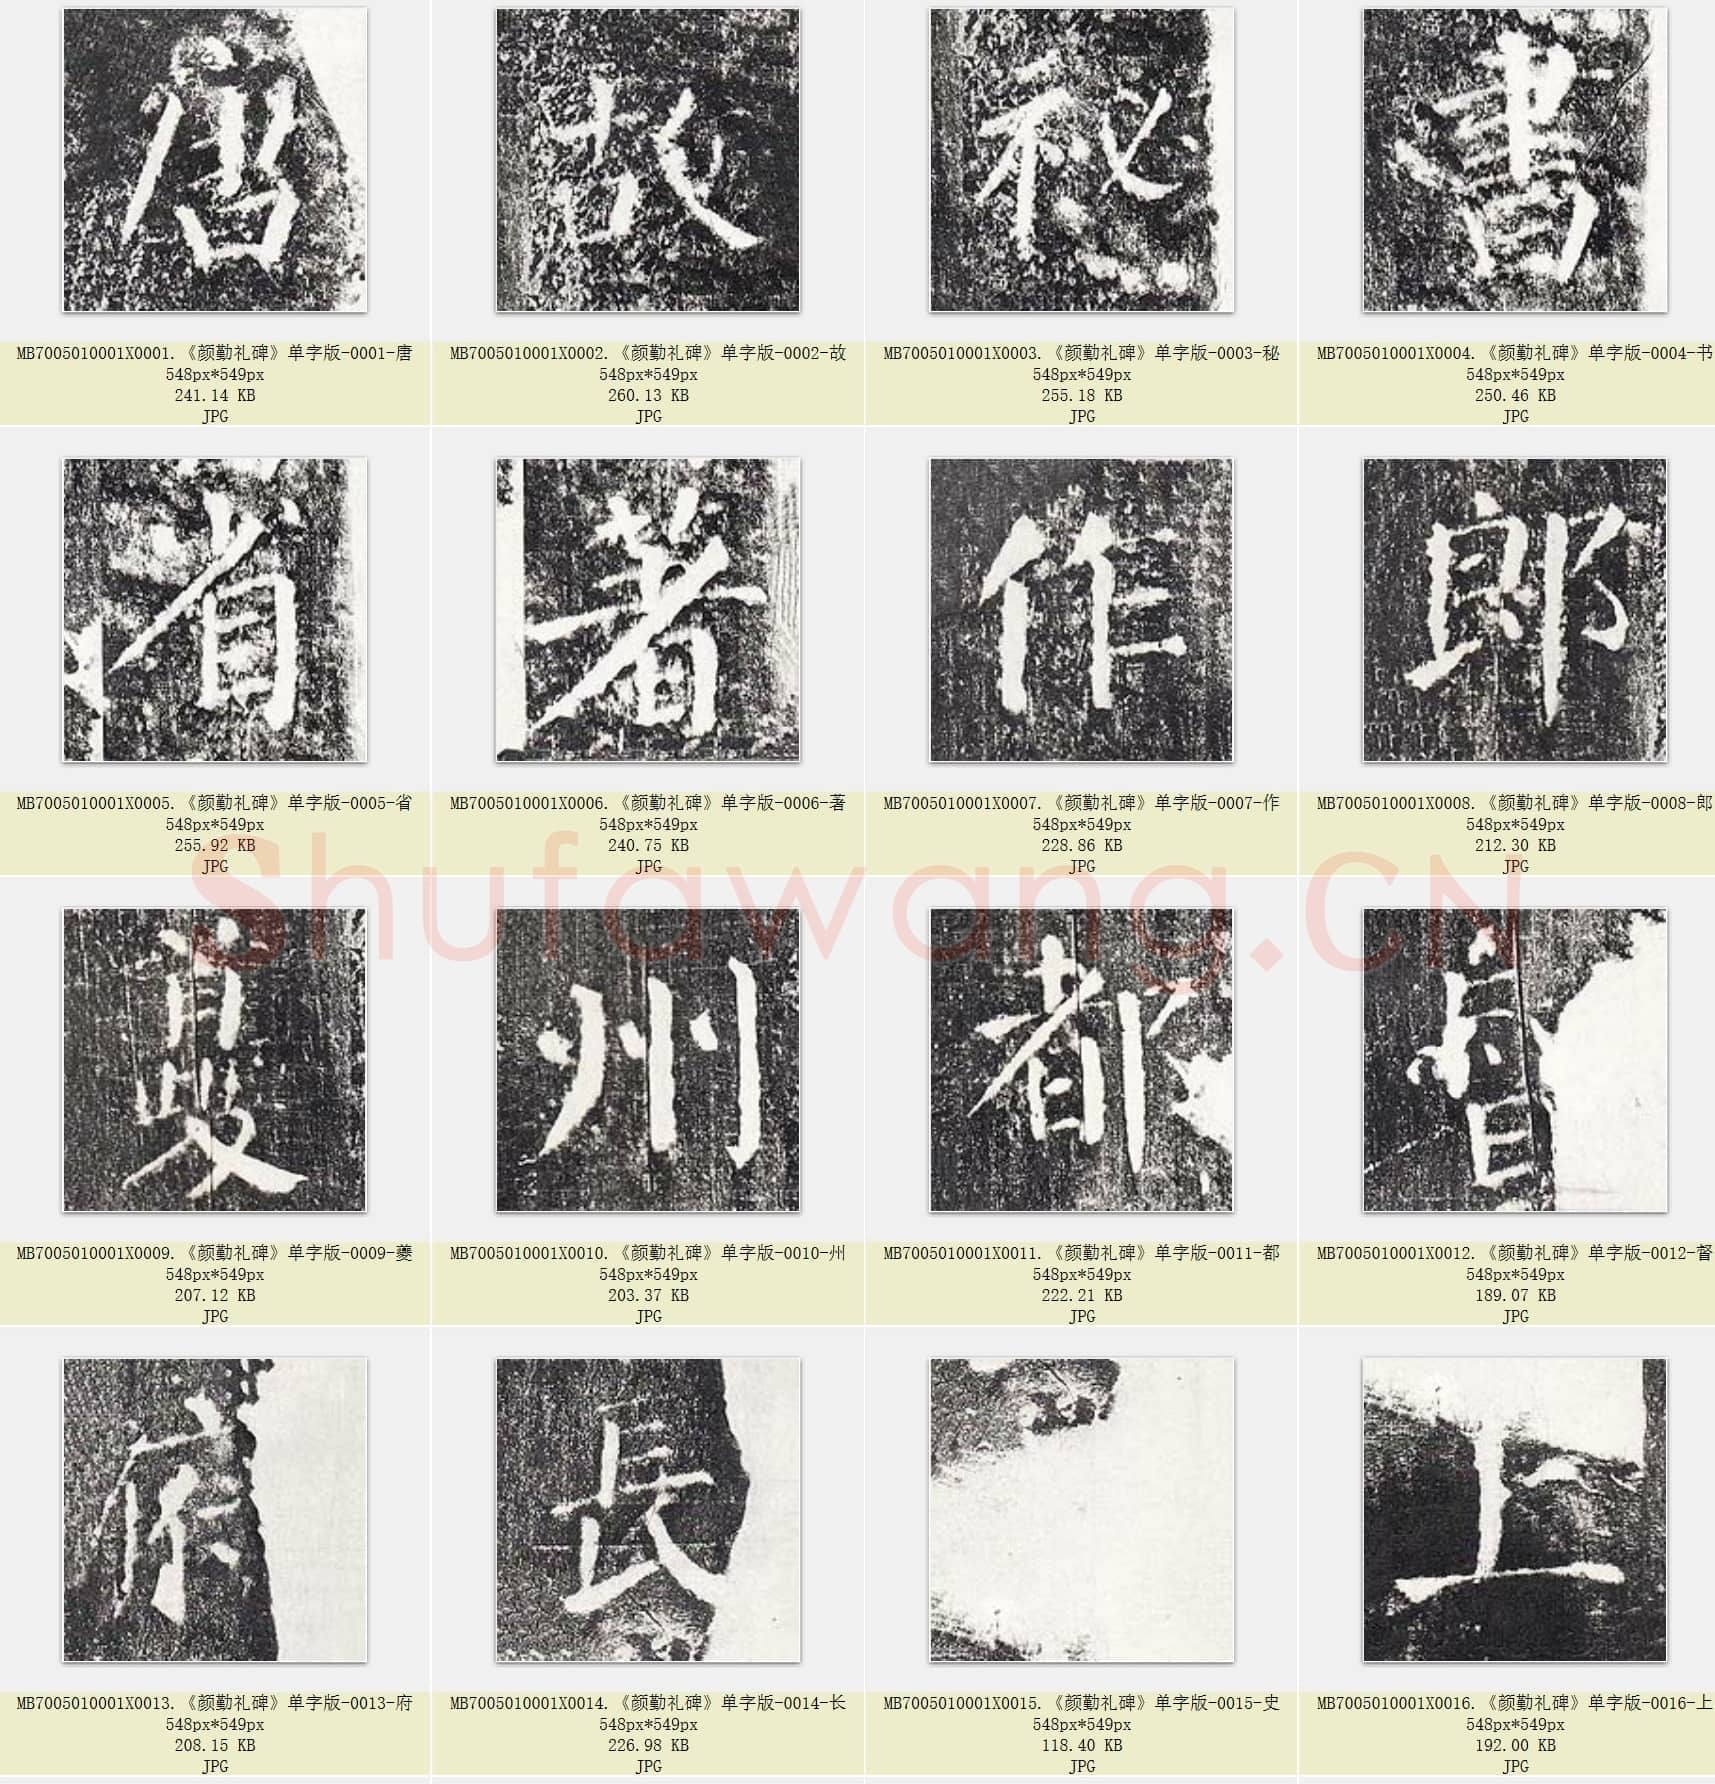 唐 故 秘 書
MB7005010001X0001.《颜勤礼碑》单字版-0001-唐
548px*549px
241.14 KB
JPG
MB7005010001X0002.《颜勤礼碑》单字版-0002-故
548px*549px
260.13 KB
JPG
MB7005010001X0003.《颜勤礼碑》单字版-0003-秘
548px*549px
255.18 KB
JPG
MB7005010001X0004.《颜勤礼碑》单字版-0004-书
548px*549px
250.46 KB
JPG
省 著 作 郎
MB7005010001X0005.《颜勤礼碑》单字版-0005-省
548px*549px
255.92 KB
JPG
MB7005010001X0006.《颜勤礼碑》单字版-0006-著
548px*549px
240.75 KB
JPG
MB7005010001X0007.《颜勤礼碑》单字版-0007-作
548px*549px
228.86 KB
JPG
MB7005010001X0008.《颜勤礼碑》单字版-0008-郎
548px*549px
212.30 KB
JPG
Shufawang.CN
夔 州 都 督
MB7005010001X0009.《颜勤礼碑》单字版-0009-夔
548px*549px
207.12 KB
JPG
MB7005010001X0010.《颜勤礼碑》单字版-0010-州
548px*549px
203.37 KB
JPG
MB7005010001X0011.《颜勤礼碑》单字版-0011-都
548px*549px
222.21 KB
JPG
MB7005010001X0012.《颜勤礼碑》单字版-0012-督
548px*549px
189.07 KB
JPG
府 長 上
MB7005010001X0013.《颜勤礼碑》单字版-0013-府
548px*549px
208.15 KB
JPG
MB7005010001X0014.《颜勤礼碑》单字版-0014-长
548px*549px
226.98 KB
JPG
MB7005010001X0015.《颜勤礼碑》单字版-0015-史
548px*549px
118.40 KB
JPG
MB7005010001X0016.《颜勤礼碑》单字版-0016-上
548px*549px
192.00 KB
JPG